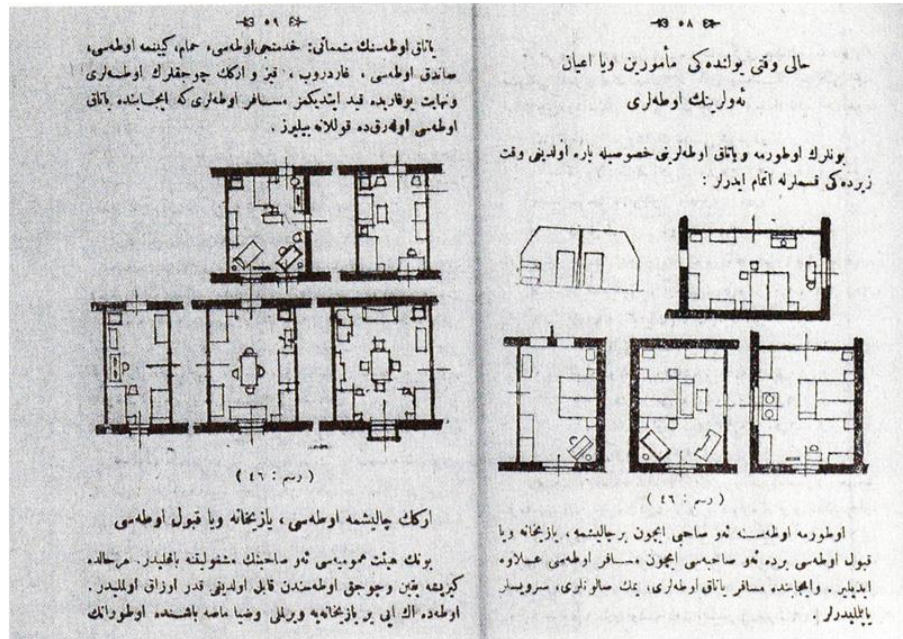 ٥٨
حالی وقتی یولنده‌کی مأمورین ویا اعیان
ئه‌ولرینك اوطه‌لری
بونلرك اوطورمه و یاتاق اوطه‌لرینی خصوصیله یاره اولدینی وقت
زیرده‌کی قسملرله اتمام ایدرلر :
( رسم : ٤٦ )
اوطورمه اوطه‌سنه ئه‌و صاحبی ایچون برچالیشمه ، یازیخانه ویا
قبول اوطه‌سی برده ئه‌و صاحبه‌سی ایچون مسافر اوطه‌سی عـلاوه
ایدیلیر . وایجابنده مسافر یاتاق اوطه‌لری، یمك صالونلری، سرویسلر
یاپیلیدرلر .
٥٩
یاتاق اوطه‌سنك متمماتی : خدمتجی اوطه‌سی ، حمام، کیینمه اوطه‌سی،
صاندق اوطه‌سی ، غاردروب ، قیز و ارکك چوجقلرك اوطه‌لری
ونهایت یوقاریده قید ایتدیکمز مسافر اوطه‌لری که ایجابنده یاتاق
اوطه‌سی اوله‌رق‌ده قوللانه بیلیرز .
( رسم : ٤٦ )
ارکك چالیشمه اوطه‌سی ، یازیخانه ویا قبول اوطه‌سی
بونك هیئت عمومیه‌سی ئه‌و صاحبنك مشغولیتنه باغلیدر. هرحالده
کیریشه یقین وچوجق اوطه‌سندن قابل اولدینی قدر اوزاق اولملیدر .
اوطه‌ده اك ایی یر یازیخانه‌یه ویریللی وضیا ماصه باشنده اوطورانك